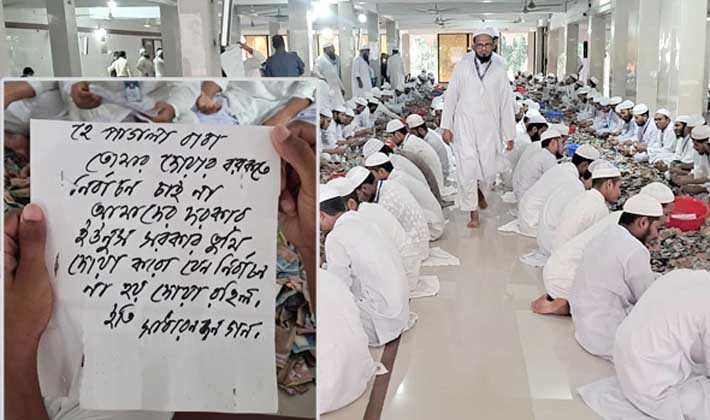 হে পাগলা বাবা
তোমার দোয়ার বরকতে
নির্বাচন চাই না
আমাদের দরকার
ইউনুস সরকার
দোয়া করো যেন নির্বাচন
না হয় দোয়া রহিল.
ইতি সাধারন জনগন.